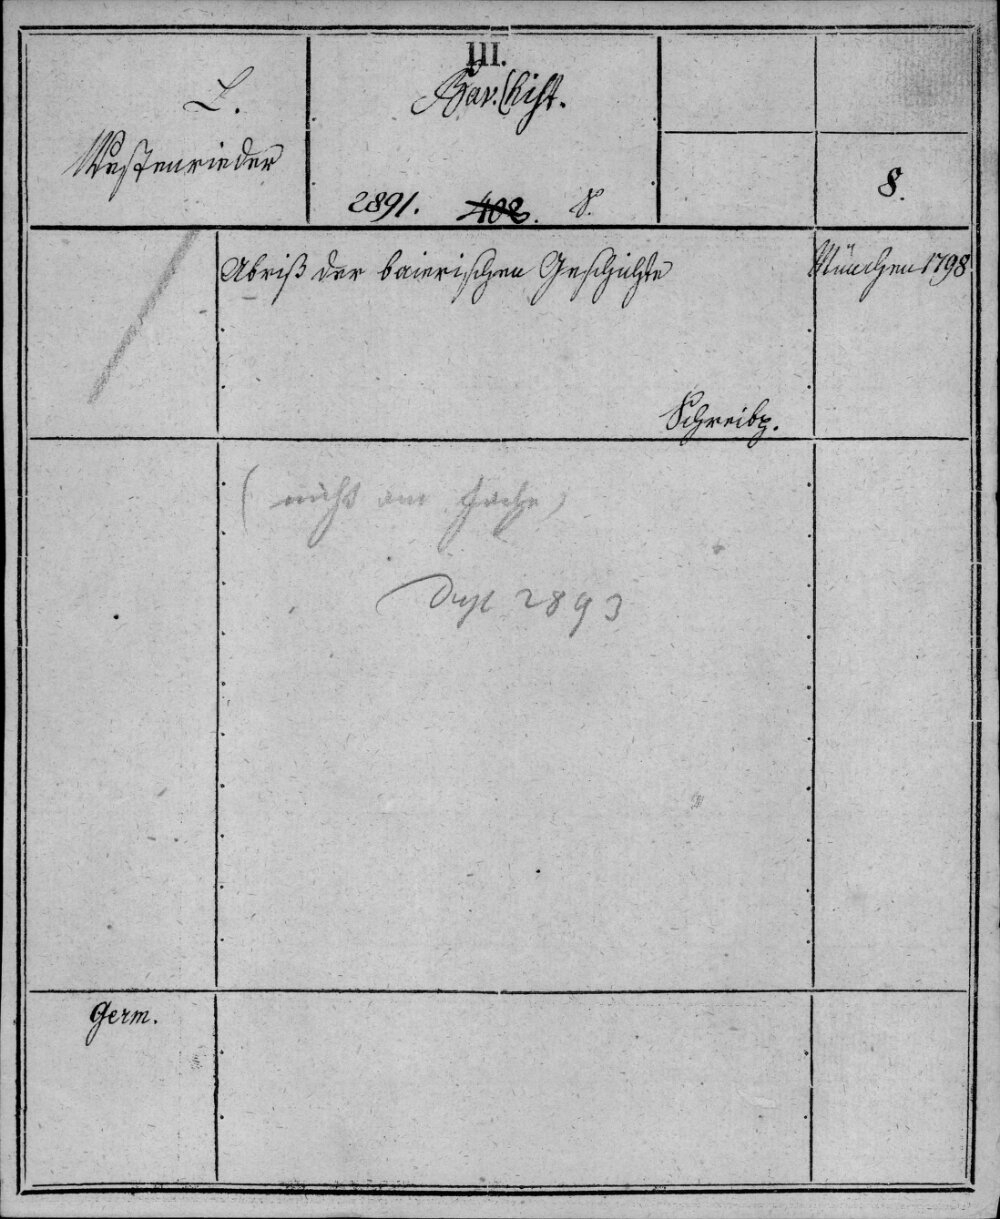 III.
Bav. hist.
L.
Westenrieder
8.
2891. 408. 8.
Abriß der baierischen Geschichte
München 1798
Schreibp.
(nicht am Fache)
2893
Germ.